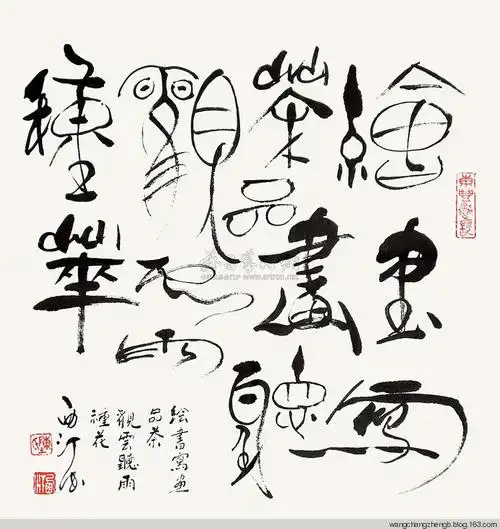 繪書寫
畫茶品聽
觀雲雨
種華
绘書寫畫
品茶
觀雲聽雨
種花
wangchangzhengb.blog.163.com